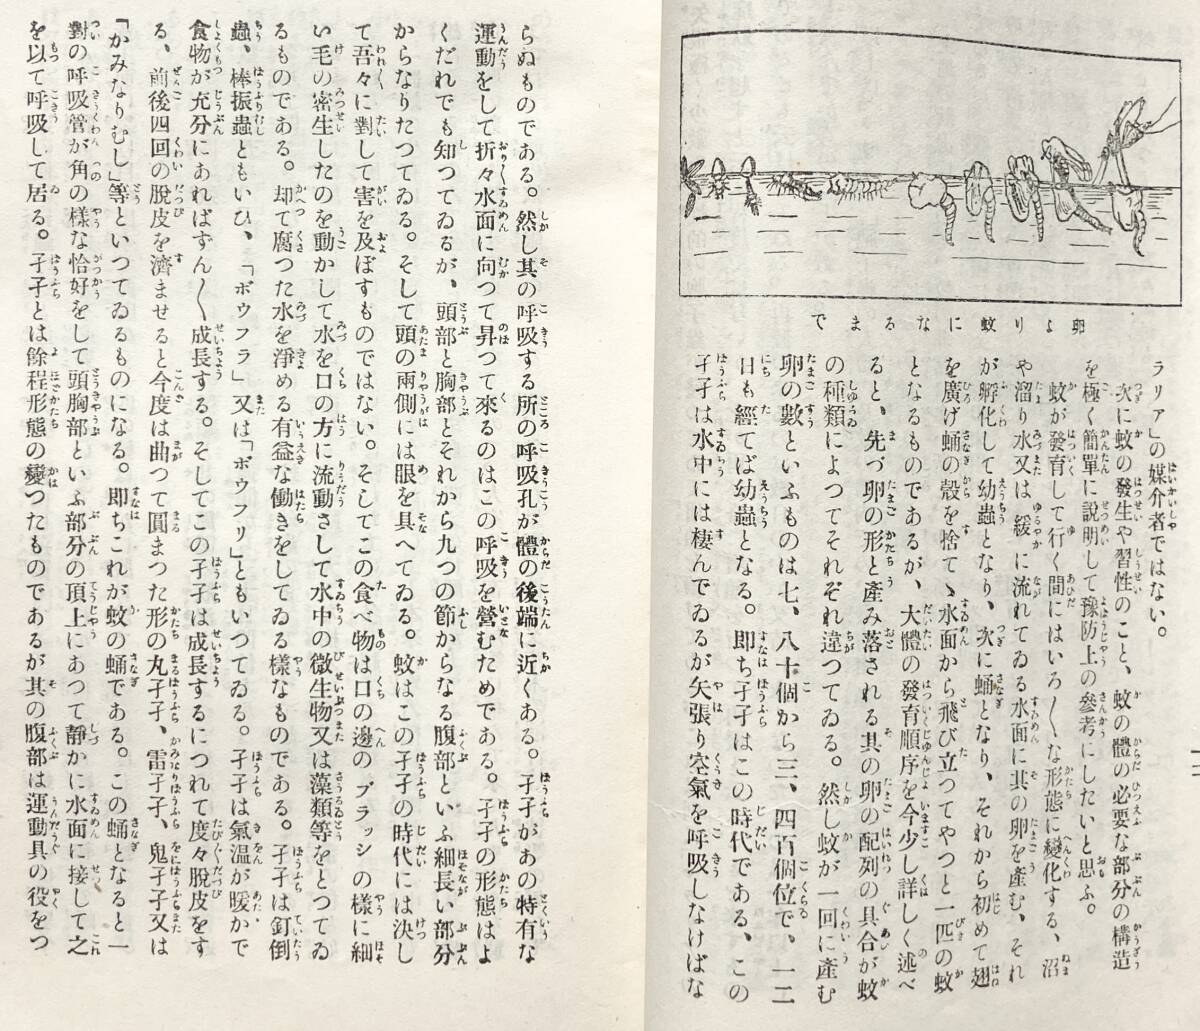 卵より蚊になるまで
ラリア」の媒介者ではない。
次に蚊の發生や習性のこと、蚊の體の必要な部分の構造
を極く簡單に説明して豫防上の參考にしたいと思ふ。
蚊が發育して行く間にはいろ〳〵な形態に變化する、沼
や溜り水又は緩に流れてゐる水面に其の卵を產む、それ
が孵化して幼蟲となり、次に蛹となり、それから初めて翅
を廣げ蛹の殼を捨てゝ水面から飛び立つてやつと一匹の蚊
となるものであるが、大體の發育順序を今少し詳しく述べ
ると、先づ卵の形と產み落される其の卵の配列の具合が蚊
の種類によつてそれぞれ違つてゐる。然し蚊が一回に產む
卵の數といふものは七、八十個から三、四百個位で、一二
日も經てば幼蟲となる。即ち孑孑はこの時代である、この
孑孑は水中には棲んでゐるが矢張り空氣を呼吸しなければな
らぬものである。然し其の呼吸する所の呼吸孔が體の後端に近くある。孑孑があの特有な
運動をして折々水面に向つて昇つて來るのはこの呼吸を營むためである。孑孑の形態はよ
くだれでも知つてゐるが、頭部と胸部とそれから九つの節からなる腹部といふ細長い部分
からなりたつてゐる。そして頭の兩側には眼を具へてゐる。蚊はこの孑孑の時代には決し
て吾々に對して害を及ぼすものではない。そしてこの食べ物は口の邊のブラッシの樣に細
い毛の密生したのを動かして水を口の方に流動さして水中の微生物又は藻類等をとつてゐ
るものである。却て腐つた水を淨める有益な働きをしてゐる樣なものである。孑孑は釘倒
蟲、棒振蟲ともいひ、「ボウフラ」又は「ボウフリ」ともいつてゐる。孑孑は氣温が暖かで
食物が充分にあればずん〳〵成長する。そしてこの孑孑は成長するにつれて度々脫皮をす
る、前後四回の脫皮を濟ませると今度は曲つて圓まつた形の丸孑孑、雷孑孑、鬼孑孑又は
「かみなりむし」等といつてゐるものになる。即ちこれが蚊の蛹である。この蛹となると一
對の呼吸管が角の樣な恰好をして頭胸部といふ部分の頂上にあつて靜かに水面に接して之
を以て呼吸して居る。孑孑とは餘程形態の變つたものであるが其の腹部は運動具の役をつ